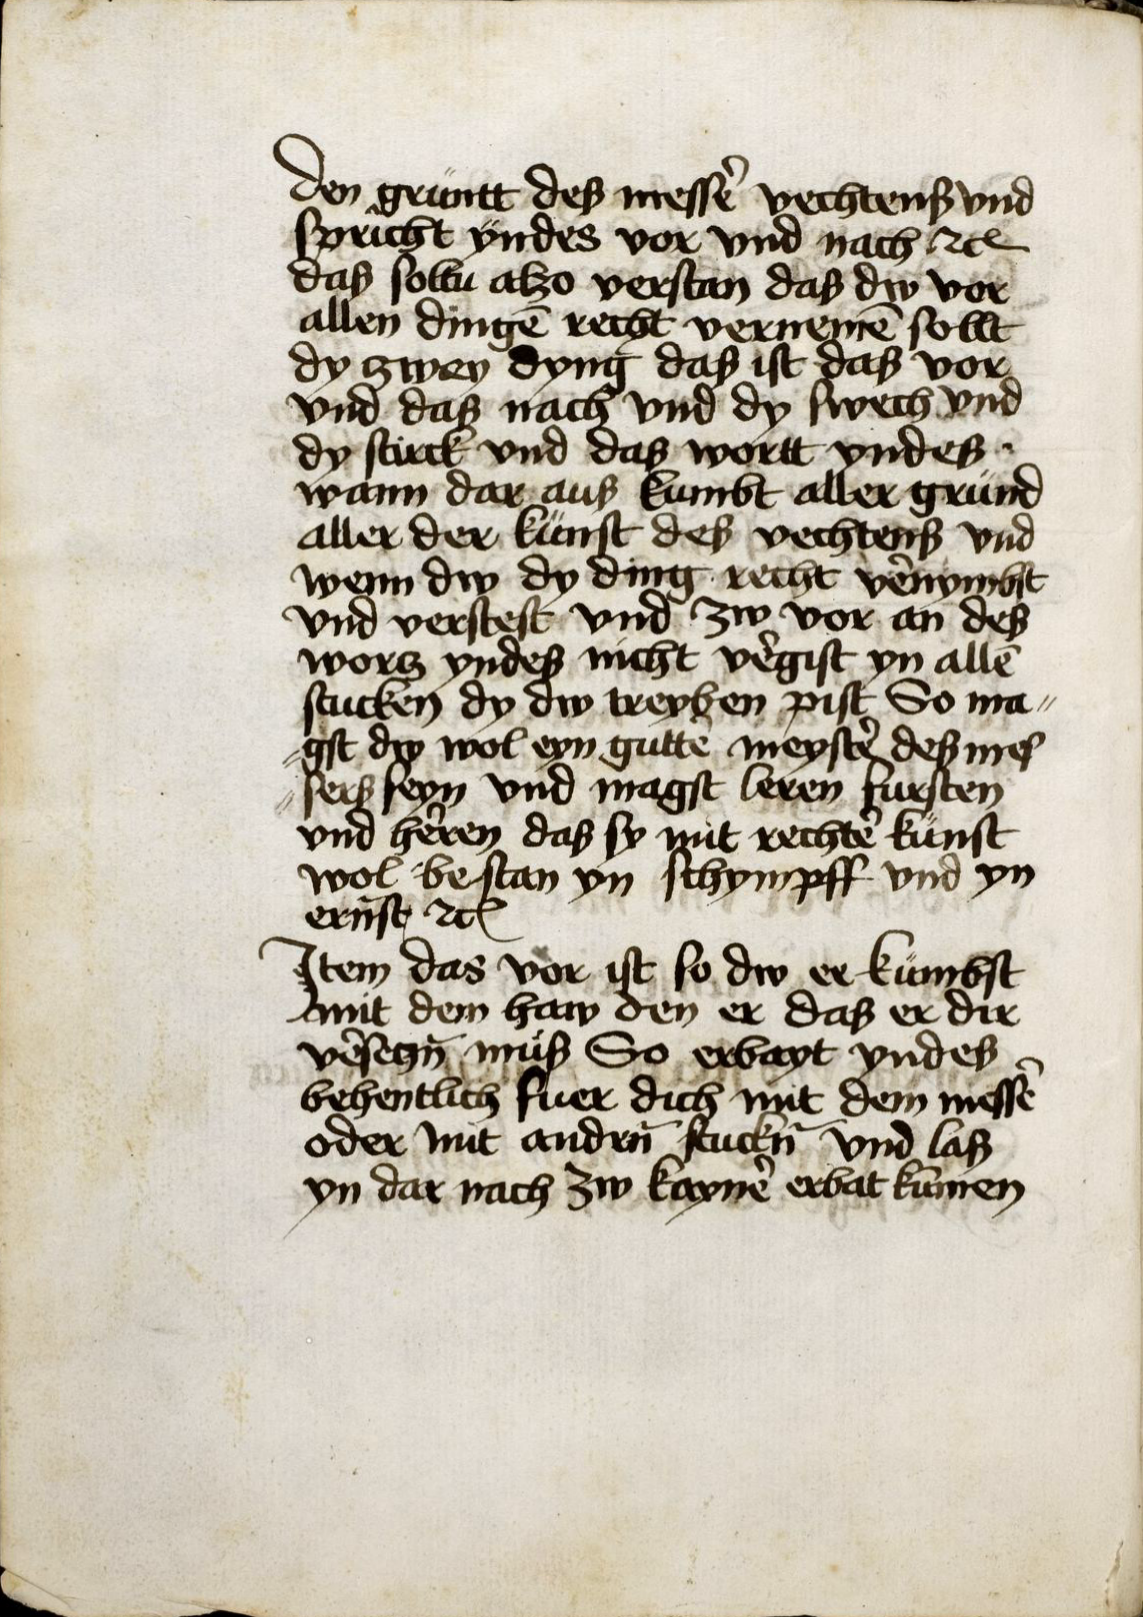 den grüntt des messẽ vechtens vnd
spricht ÿndes vor vnd nach ⁊cꝛ
das soltu also verstan das dw vor
allen dingē recht vernemē sollt
dy zwey dyng das ist das vor
vnd das nach vnd dy swech vnd
dy sterck vnd das wortt yndes ·
wann dar aus kumbt aller grund
aller der künst des vechtens vnd
wenn dw dy ding recht vẽnymbst
vnd verstest vnd zw vor an des
wortz yndes nicht vẽgist yn allē
stucken dy dw treyben pist So ma⸗
⸗gst dw wol eyn guttẽ meystẽ des mes
⸗sers seyn vnd magst leren fursten
vnd hẽren das sy mit rechtẽ künst
wol bestan yn schympff vnd yn
ernst ⁊cꝛ
Item das vor ist so dw er kümbst
mit dem haw den er das er dir
vẽsetzn̄ müs So erbayt yndes
behentlich fuer dich mit dem messẽ
oder mit andrn̄ stuckn̄ vnd las
yn dar nach zw kaynẽ erbat kūmen